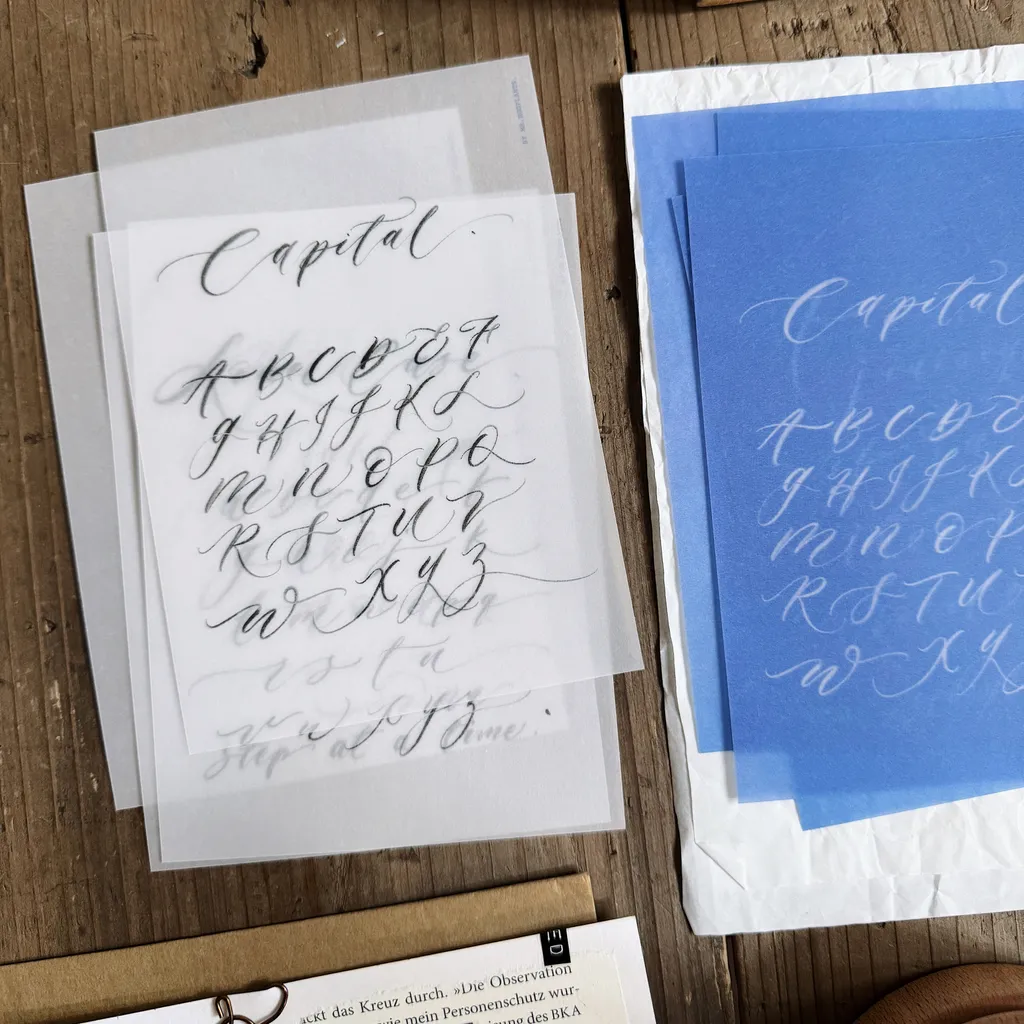 Capital.
A B C D E F
G H I J K L
M N O P Q
R S T U V
W X Y Z
r s t u
v w x y z
step at a time.
Capital
A B C D E
G H I J K
M N O P
R S T U
W X Y
ED
das Kreuz durch. »Die Observation
wie mein Personenschutz wur-
des BKA